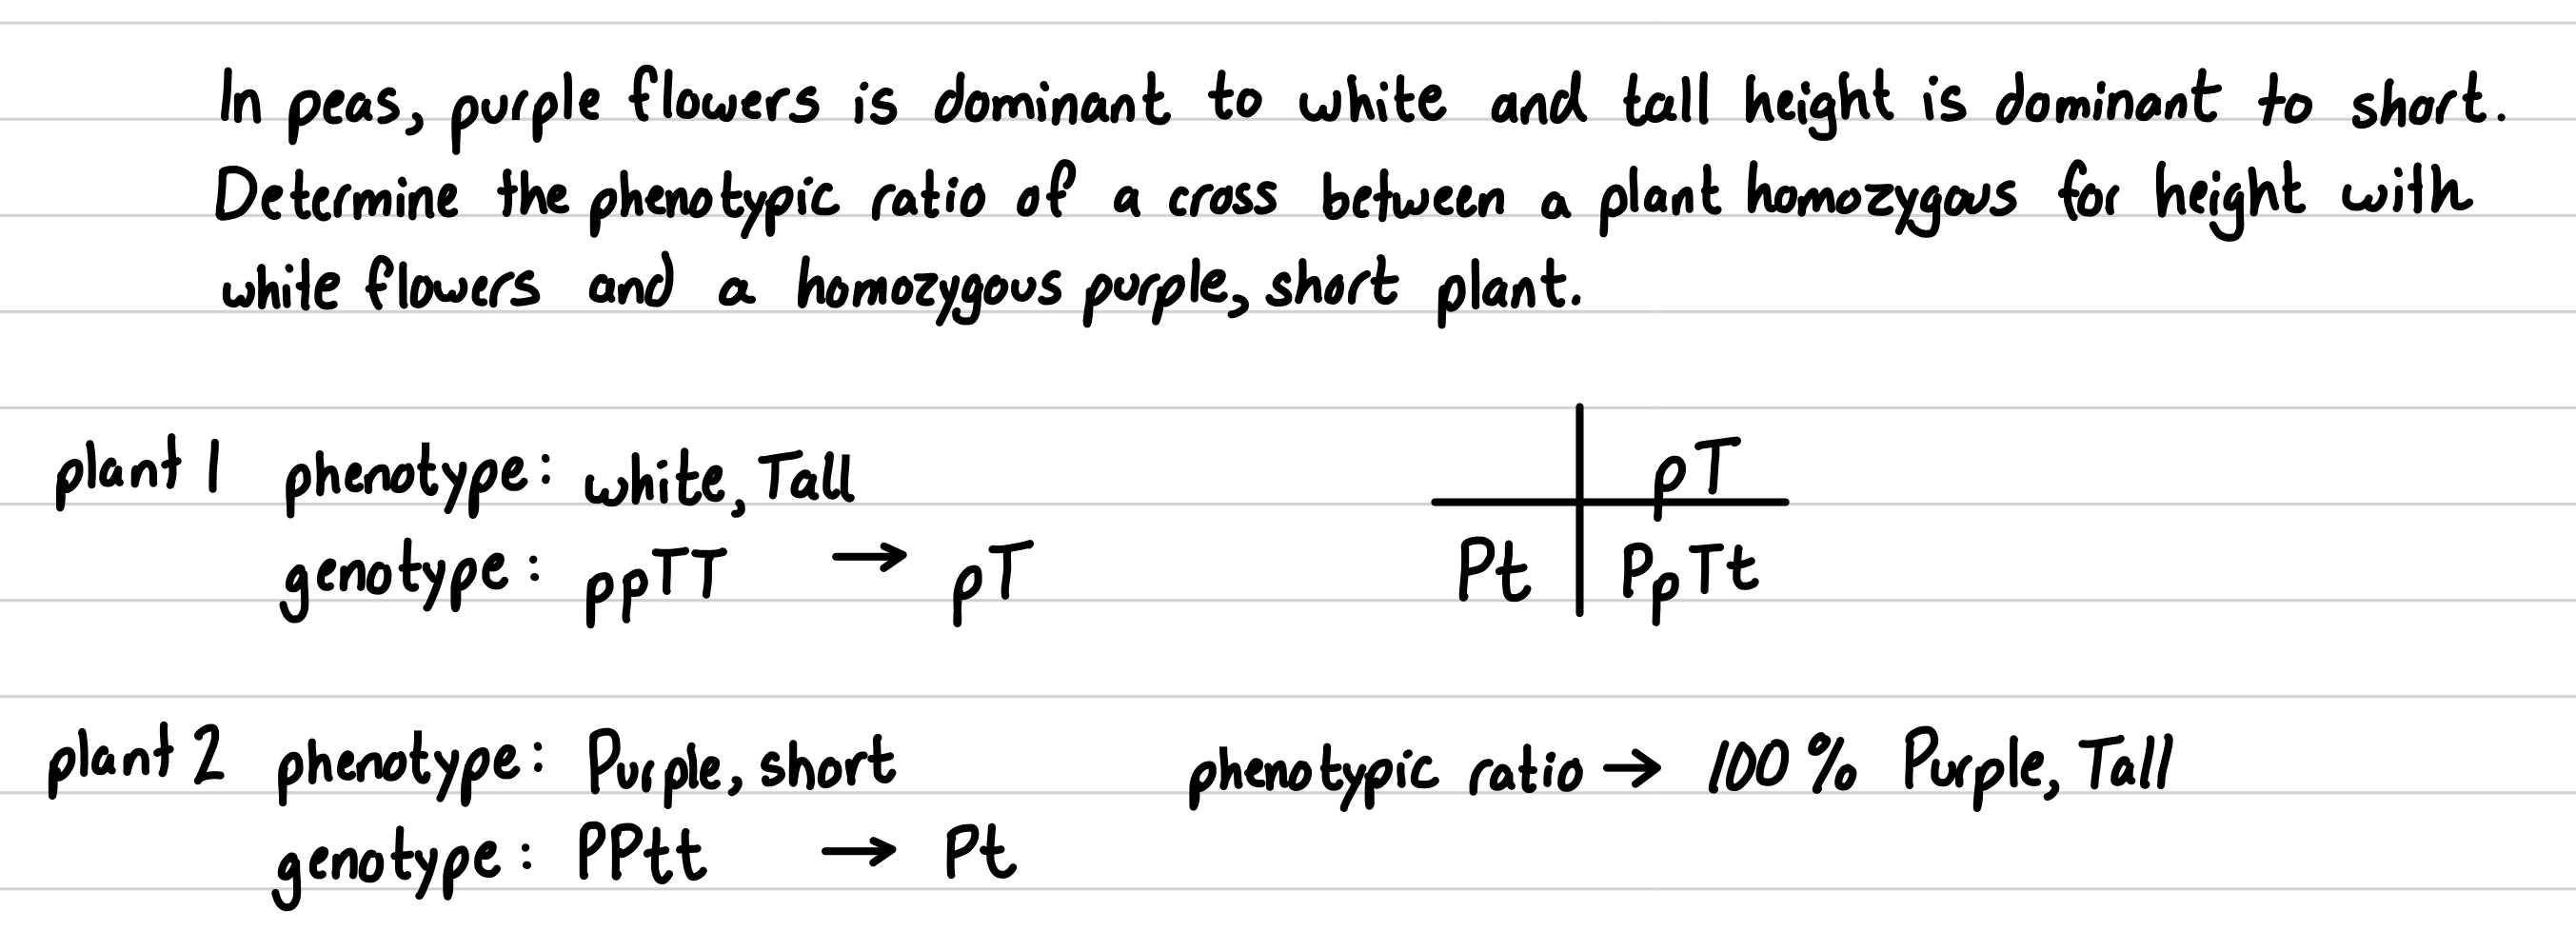 In peas, purple flowers is dominant to white and tall height is dominant to short.
Determine the phenotypic ratio of a cross between a plant homozygous for height with
white flowers and a homozygous purple, short plant.
plant 1 phenotype: white, Tall
genotype: ppTT → pT
pT
Pt PpTt
plant 2 phenotype: Purple, short
genotype: PPtt → Pt
phenotypic ratio → 100% Purple, Tall